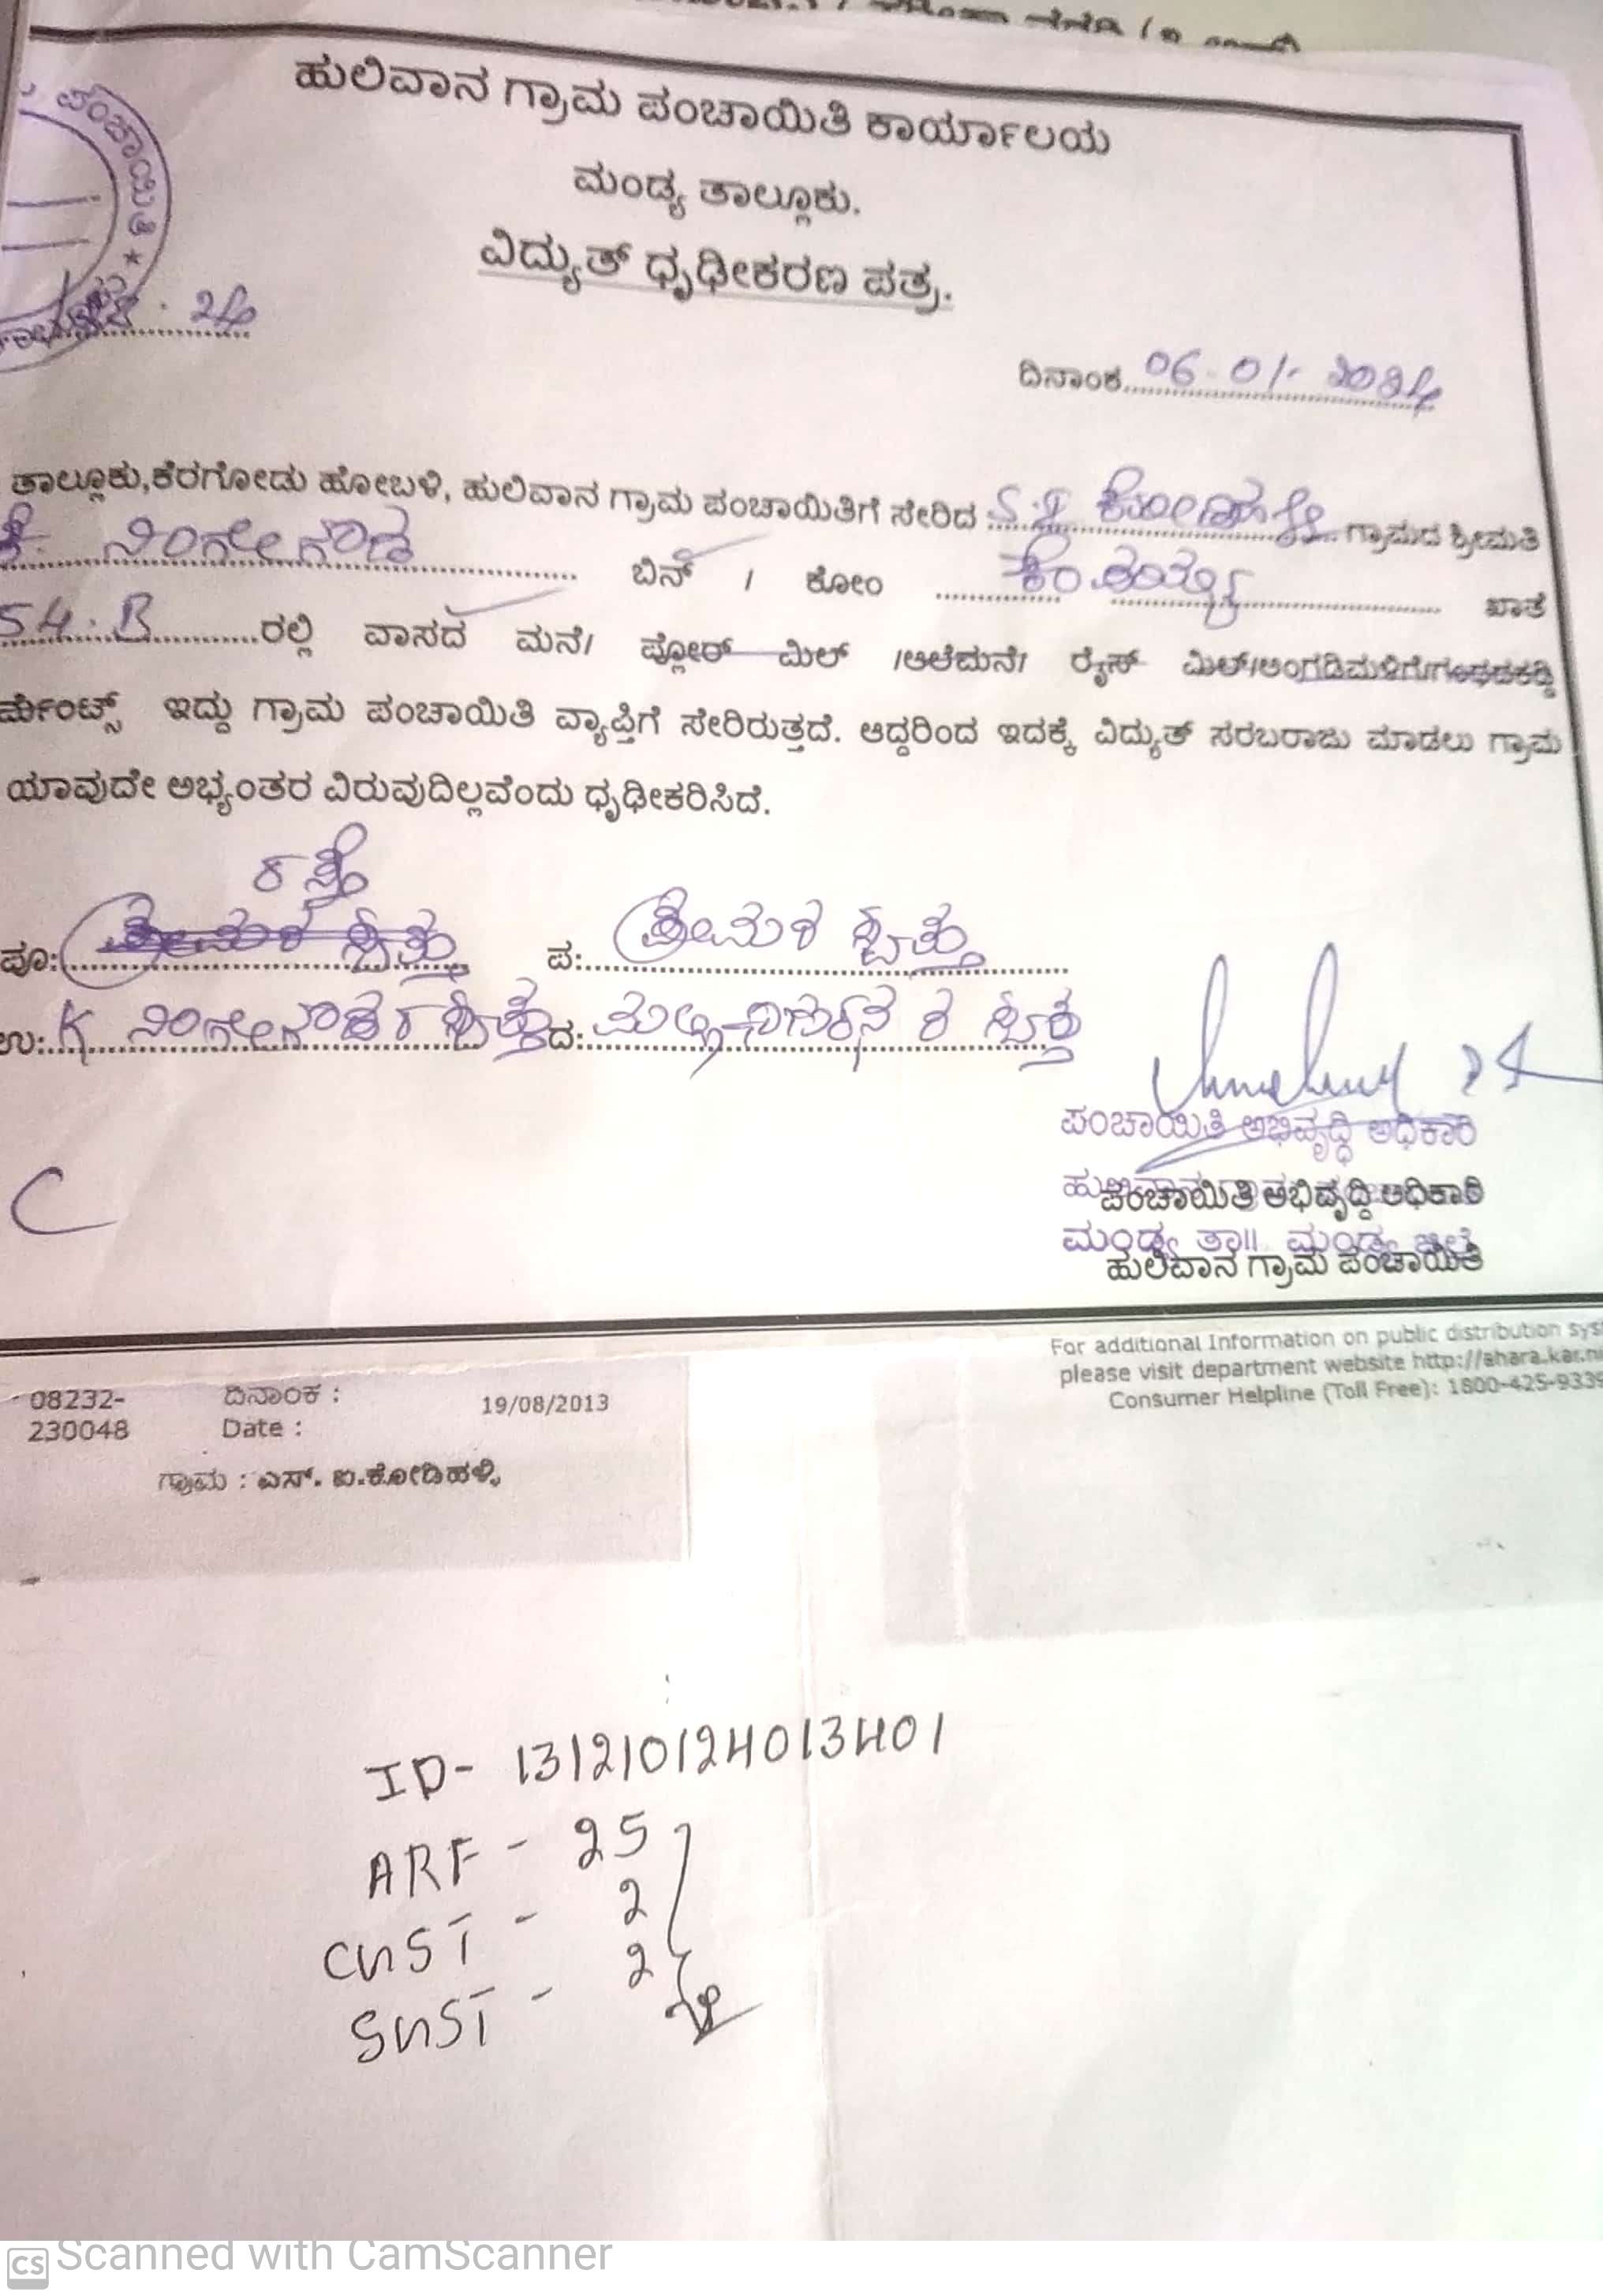 ಪಂಚಾಯಿತಿ ★
ಹುಲಿವಾನ ಗ್ರಾಮ ಪಂಚಾಯಿತಿ ಕಾರ್ಯಾಲಯ
ಮಂಡ್ಯ ತಾಲ್ಲೂಕು.
ವಿದ್ಯುತ್ ಧೃಢೀಕರಣ ಪತ್ರ.
24
ದಿನಾಂಕ 06-01-2024
ತಾಲ್ಲೂಕು,ಕೆರಗೋಡು ಹೋಬಳಿ, ಹುಲಿವಾನ ಗ್ರಾಮ ಪಂಚಾಯಿತಿಗೆ ಸೇರಿದ S.I ಕೋಡಿಹಳ್ಳಿ ಗ್ರಾಮದ ಶ್ರೀಮತಿ
ಕೆ. ನಿಂಗೇಗೌಡ ಬಿನ್ / ಕೋಂ ಕೆಂಚಯ್ಯ ಖಾತೆ
54.B ರಲ್ಲಿ ವಾಸದ ಮನೆ/ ಪ್ಲೋರ್ ಮಿಲ್ /ಆಲೆಮನೆ/ ರೈಸ್ ಮಿಲ್/ಅಂಗಡಿಮಳಿಗೆ/ಗಂಧದಕಡ್ಡಿ
ರ್ಮೆಂಟ್ಸ್ ಇದ್ದು ಗ್ರಾಮ ಪಂಚಾಯಿತಿ ವ್ಯಾಪ್ತಿಗೆ ಸೇರಿರುತ್ತದೆ. ಆದ್ದರಿಂದ ಇದಕ್ಕೆ ವಿದ್ಯುತ್ ಸರಬರಾಜು ಮಾಡಲು ಗ್ರಾಮ
ಯಾವುದೇ ಅಭ್ಯಂತರ ವಿರುವುದಿಲ್ಲವೆಂದು ಧೃಢೀಕರಿಸಿದೆ.
ರಸ್ತೆ
ಪೂ: ಪ: ಸ್ವತ್ತು
ಉ: K ನಿಂಗೇಗೌಡರ ಸ್ವತ್ತು ದ: ಸ್ವತ್ತು
ಪಂಚಾಯಿತಿ ಅಭಿವೃದ್ಧಿ ಅಧಿಕಾರಿ
ಪಂಚಾಯಿತಿ ಅಭಿವೃದ್ಧಿ ಅಧಿಕಾರಿ
ಮಂಡ್ಯ ತಾ|| ಮಂಡ್ಯ ಜಿಲ್ಲೆ
ಹುಲಿವಾನ ಗ್ರಾಮ ಪಂಚಾಯಿತಿ
For additional Information on public distribution sys
please visit department website http://ahara.kar.ni
Consumer Helpline (Toll Free): 1800-425-9339
08232- ದಿನಾಂಕ : 19/08/2013
230048 Date :
ಗ್ರಾಮ : ಎಸ್. ಐ.ಕೋಡಿಹಳ್ಳಿ
ID- 131210124013401
ARF - 25
CGST - 2
SGST - 2
CS Scanned with CamScanner